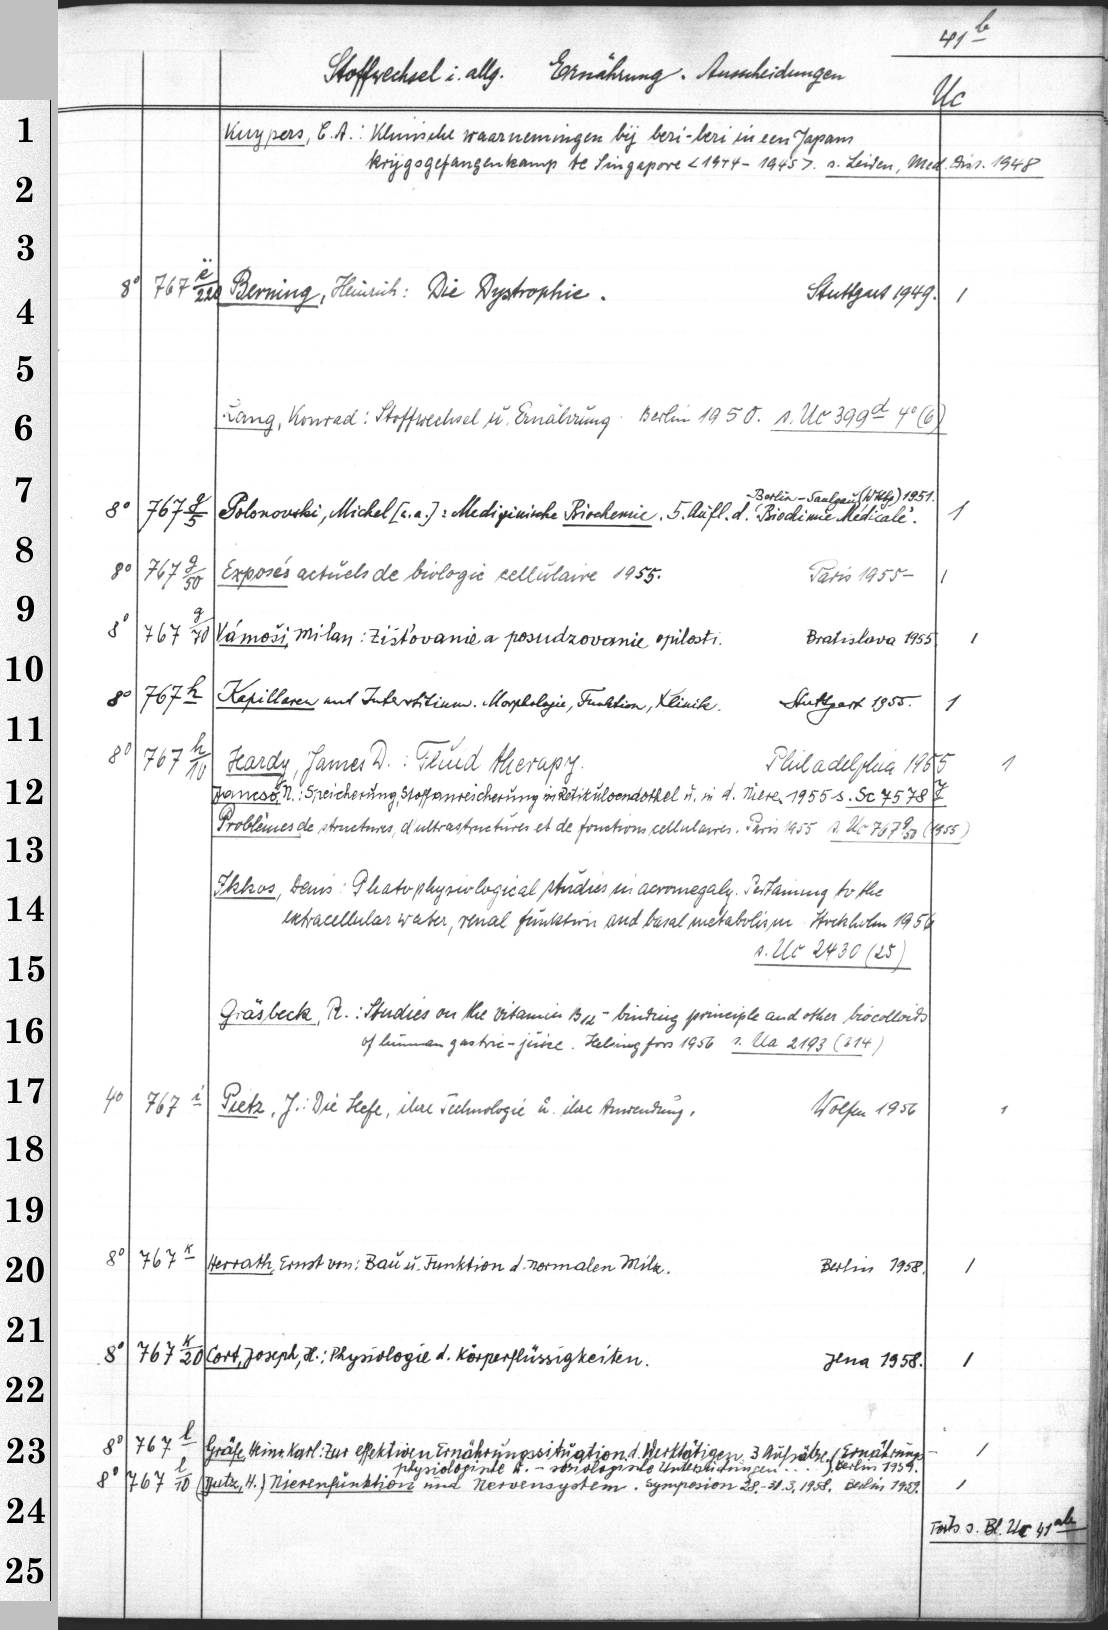 41 b
Stoffwechsel i. allg. Ernährung. Ausscheidungen
Uc
1
Kuypers, E. A.: Klinische waarnemingen bij beri-beri in een Japans
krijgsgefangenkamp te Singapore <1944-1945>. s. Leiden, Med. Diss. 1948
2
3
8° 767 ë/220 Berning, Heinrich: Die Dystrophie. Stuttgart 1949. 1
4
5
Lang, Konrad: Stoffwechsel u. Ernährung. Berlin 1950. s. Uc 399 d 4° (6)
6
7
Berlin-Saulgau (Wttbg) 1951.
8° 767 g/5 Polonovski, Michel [u. a.]: Medizinische Biochemie. 5. Aufl. d. "Biochimie Médicale". 1
8
8° 767 g/50 Exposés actuels de biologie cellulaire 1955. Paris 1955- 1
9
8° 767 g/70 Vámoši, Milan: Zisťovanie a posudzovanie opilosti. Bratislava 1955 1
10
8° 767 h Kapillaren und Interstitium. Morphologie, Funktion, Klinik. Stuttgart 1955. 1
11
8° 767 h/10 Hardy, James D.: Fluid therapy. Philadelphia 1955 1
12
Jancsó, N.: Speicherung, Stoffanreicherung im Retikuloendothel u. in d. Niere. 1955 s. Sc 7578
Problèmes de structures, d'ultrastructures et de fonctions cellulaires. Paris 1955 s. Uc 767 g/50 (1955)
13
Ikkos, Denis: Phatophysiological studies in acromegaly. Pertaining to the
14
extracellular water, renal funktion and basal metabolism. Stockholm 1956
s. Uc 2430 (25)
15
Gräsbeck, R.: Studies on the vitamin B12-binding principle and other biocolloids
16
of human gastric-juice. Helsingfors 1956 s. Ua 2193 (314)
17
4° 767 i Pietz, J.: Die Hefe, ihre Technologie u. ihre Anwendung. Wolfen 1956 1
18
19
8° 767 k Herrath, Ernst von: Bau u. Funktion d. normalen Milz. Berlin 1958. 1
20
21
8° 767 k/20 Cort, Joseph, H.: Physiologie d. Körperflüssigkeiten. Jena 1958. 1
22
8° 767 l Gräfe, Heinz Karl: Zur effektiven Ernährungssituation d. Werktätigen. 3 Aufsätze. (Ernährungs- 1
23
physiologische u. - soziologische Untersuchungen . . .) Berlin 1959.
8° 767 l/10 (Dutz, H.) Nierenfunktion und Nervensystem. Symposion 28.-31.5.1958. Berlin 1959. 1
24
Forts s. Bl. Uc 41 ab
25